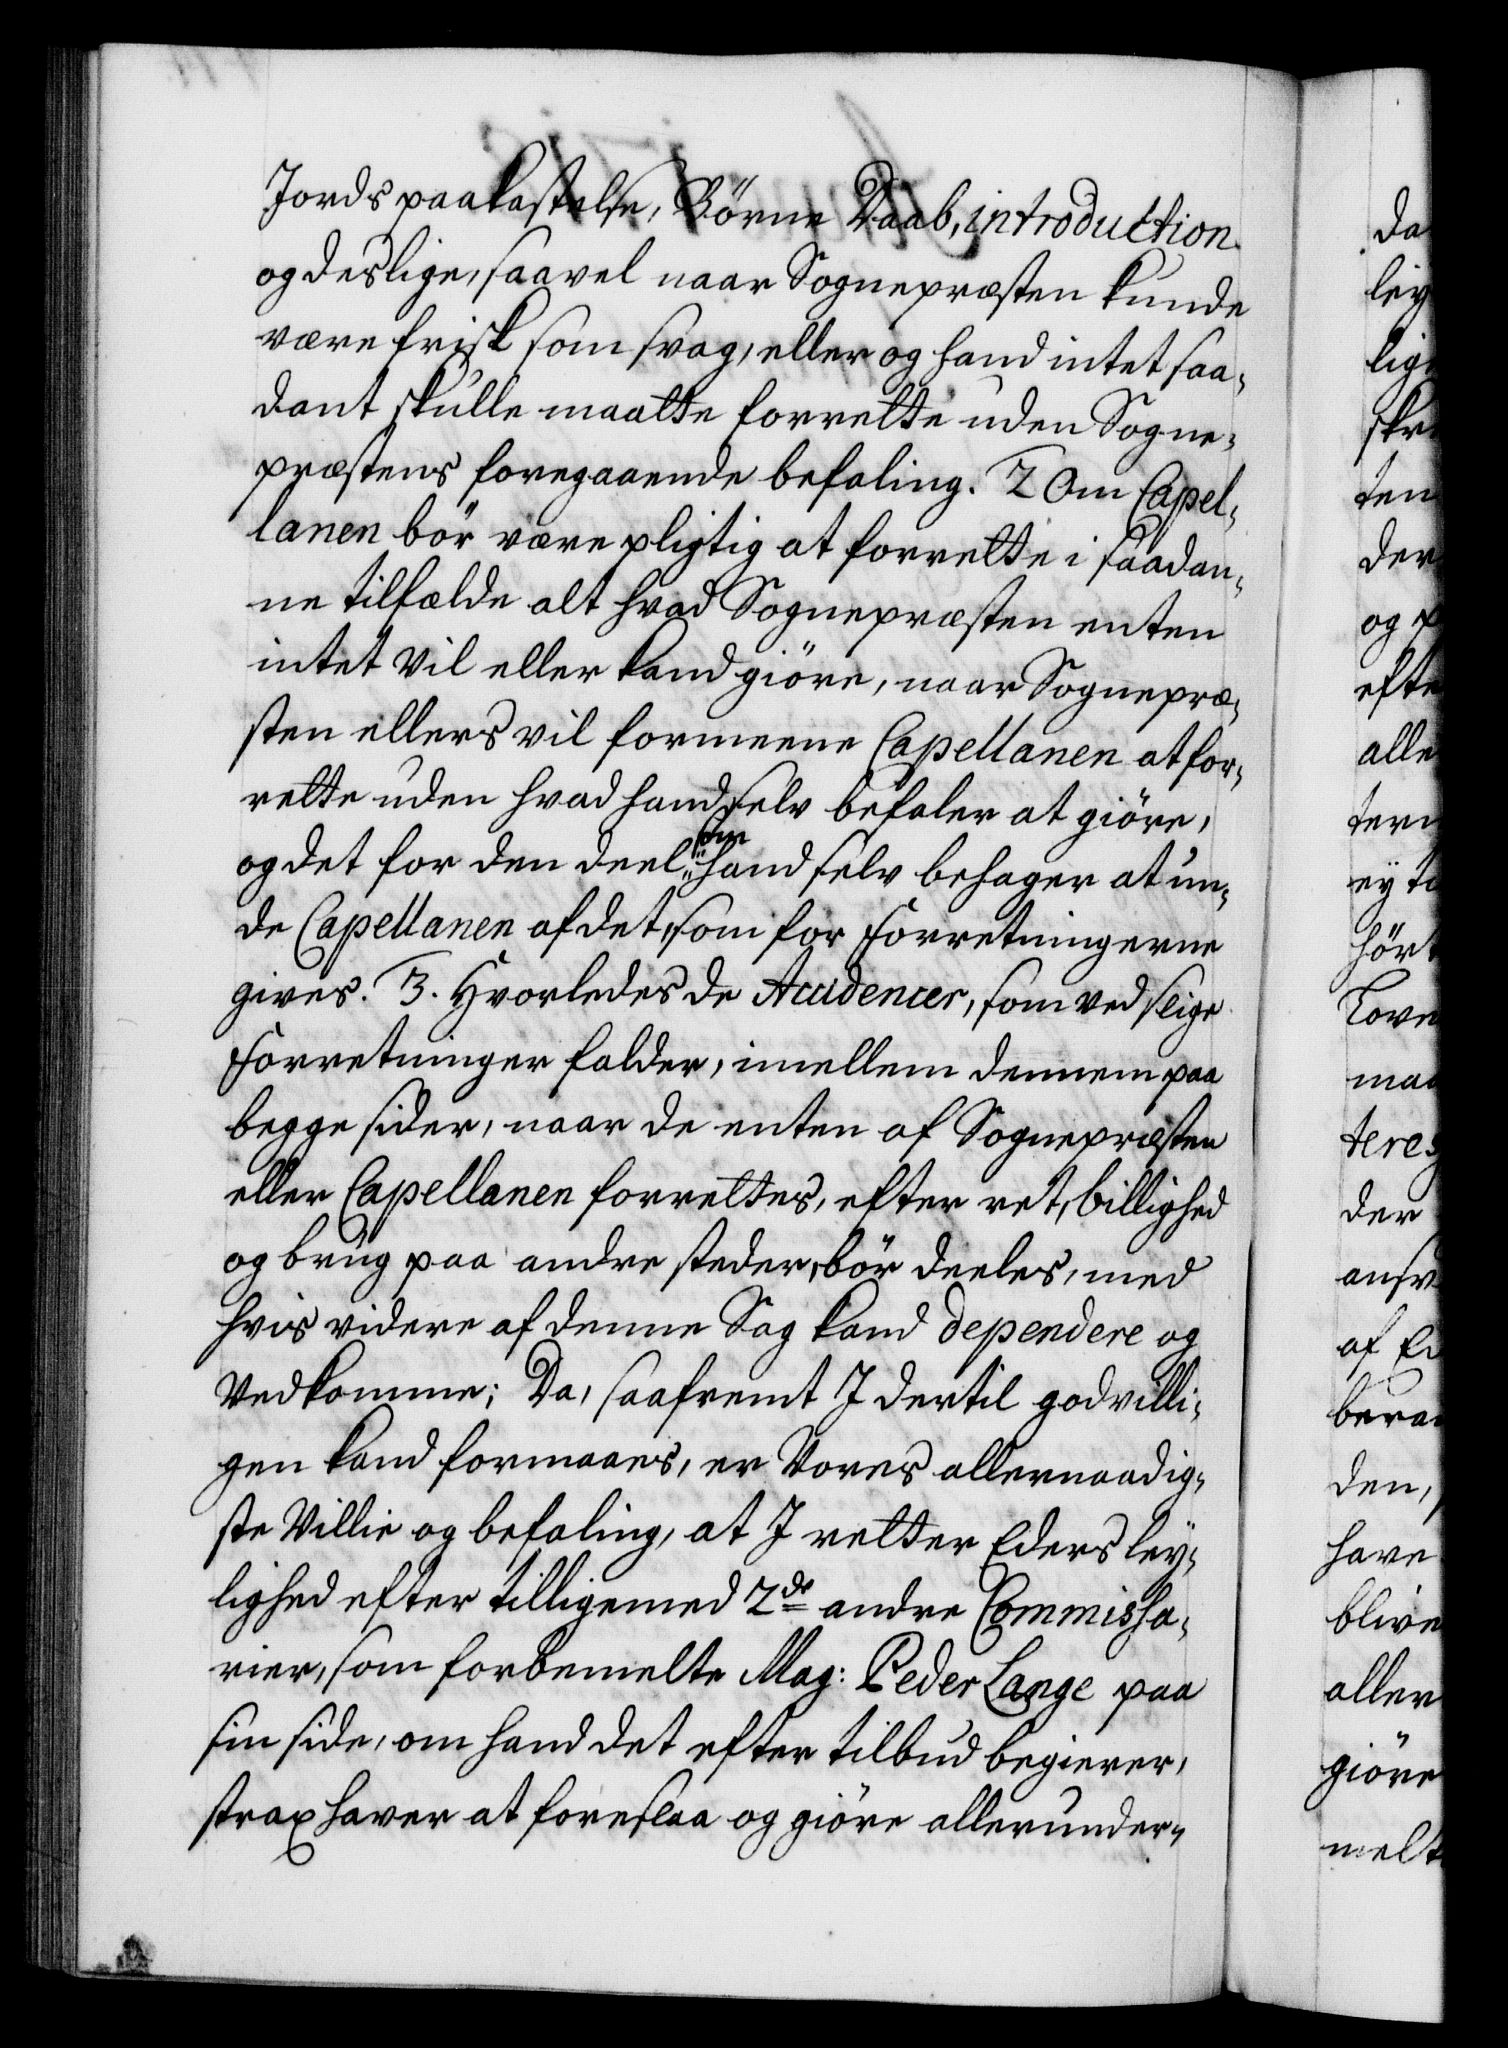 Jords paakastelse, Börne Daab, introduction
og deslige, saavel naar Sognepræsten kunde
være frisk som svag, eller og hand intet saa-
dant skulle maatte forrette uden Sogne-
præstens foregaaende befaling. 2 Om Capel-
lanen bör være pligtig at forrette i saadan-
ne tilfælde alt hvad Sognepræsten enten
intet vil eller kand giöre, naar Sognepræ-
sten ellers vil formeene Capellanen at for-
rette uden hvad hand selv befaler at giöre,
og det for den deel som hand selv behager at un-
de Capellanen af det, som for Forretningerne
gives. 3. Hvorledes de Accidencer, som ved slige
Forretninger falder, imellem dennem paa
begge sider, naar de enten af Sognepræsten
eller Capellanen forrettes, efter ret, billighed
og brug paa andre steder, bör deeles, med
hvis videre af denne Sag kand dependere og
Vedkomme; Da, saafremt J dertil godvilli-
gen kand formaaes, er Vores allernaadig-
ste Villie og befaling, at J retter Eders ley-
lighed efter tilligemed 2de andre Commissa-
rier, som forbemelte Mag: Peder Lange paa
sin side, om hand det efter tilbud begierer,
strax haver at foreslaa og giöre allerunder-
da
ley
lig
skr
ten
der
og
efte
alle
tern
ey t
hört
Love
maa
teres
der
ansv
af Ed
bera
den,
have
blive
aller
giöre
melt